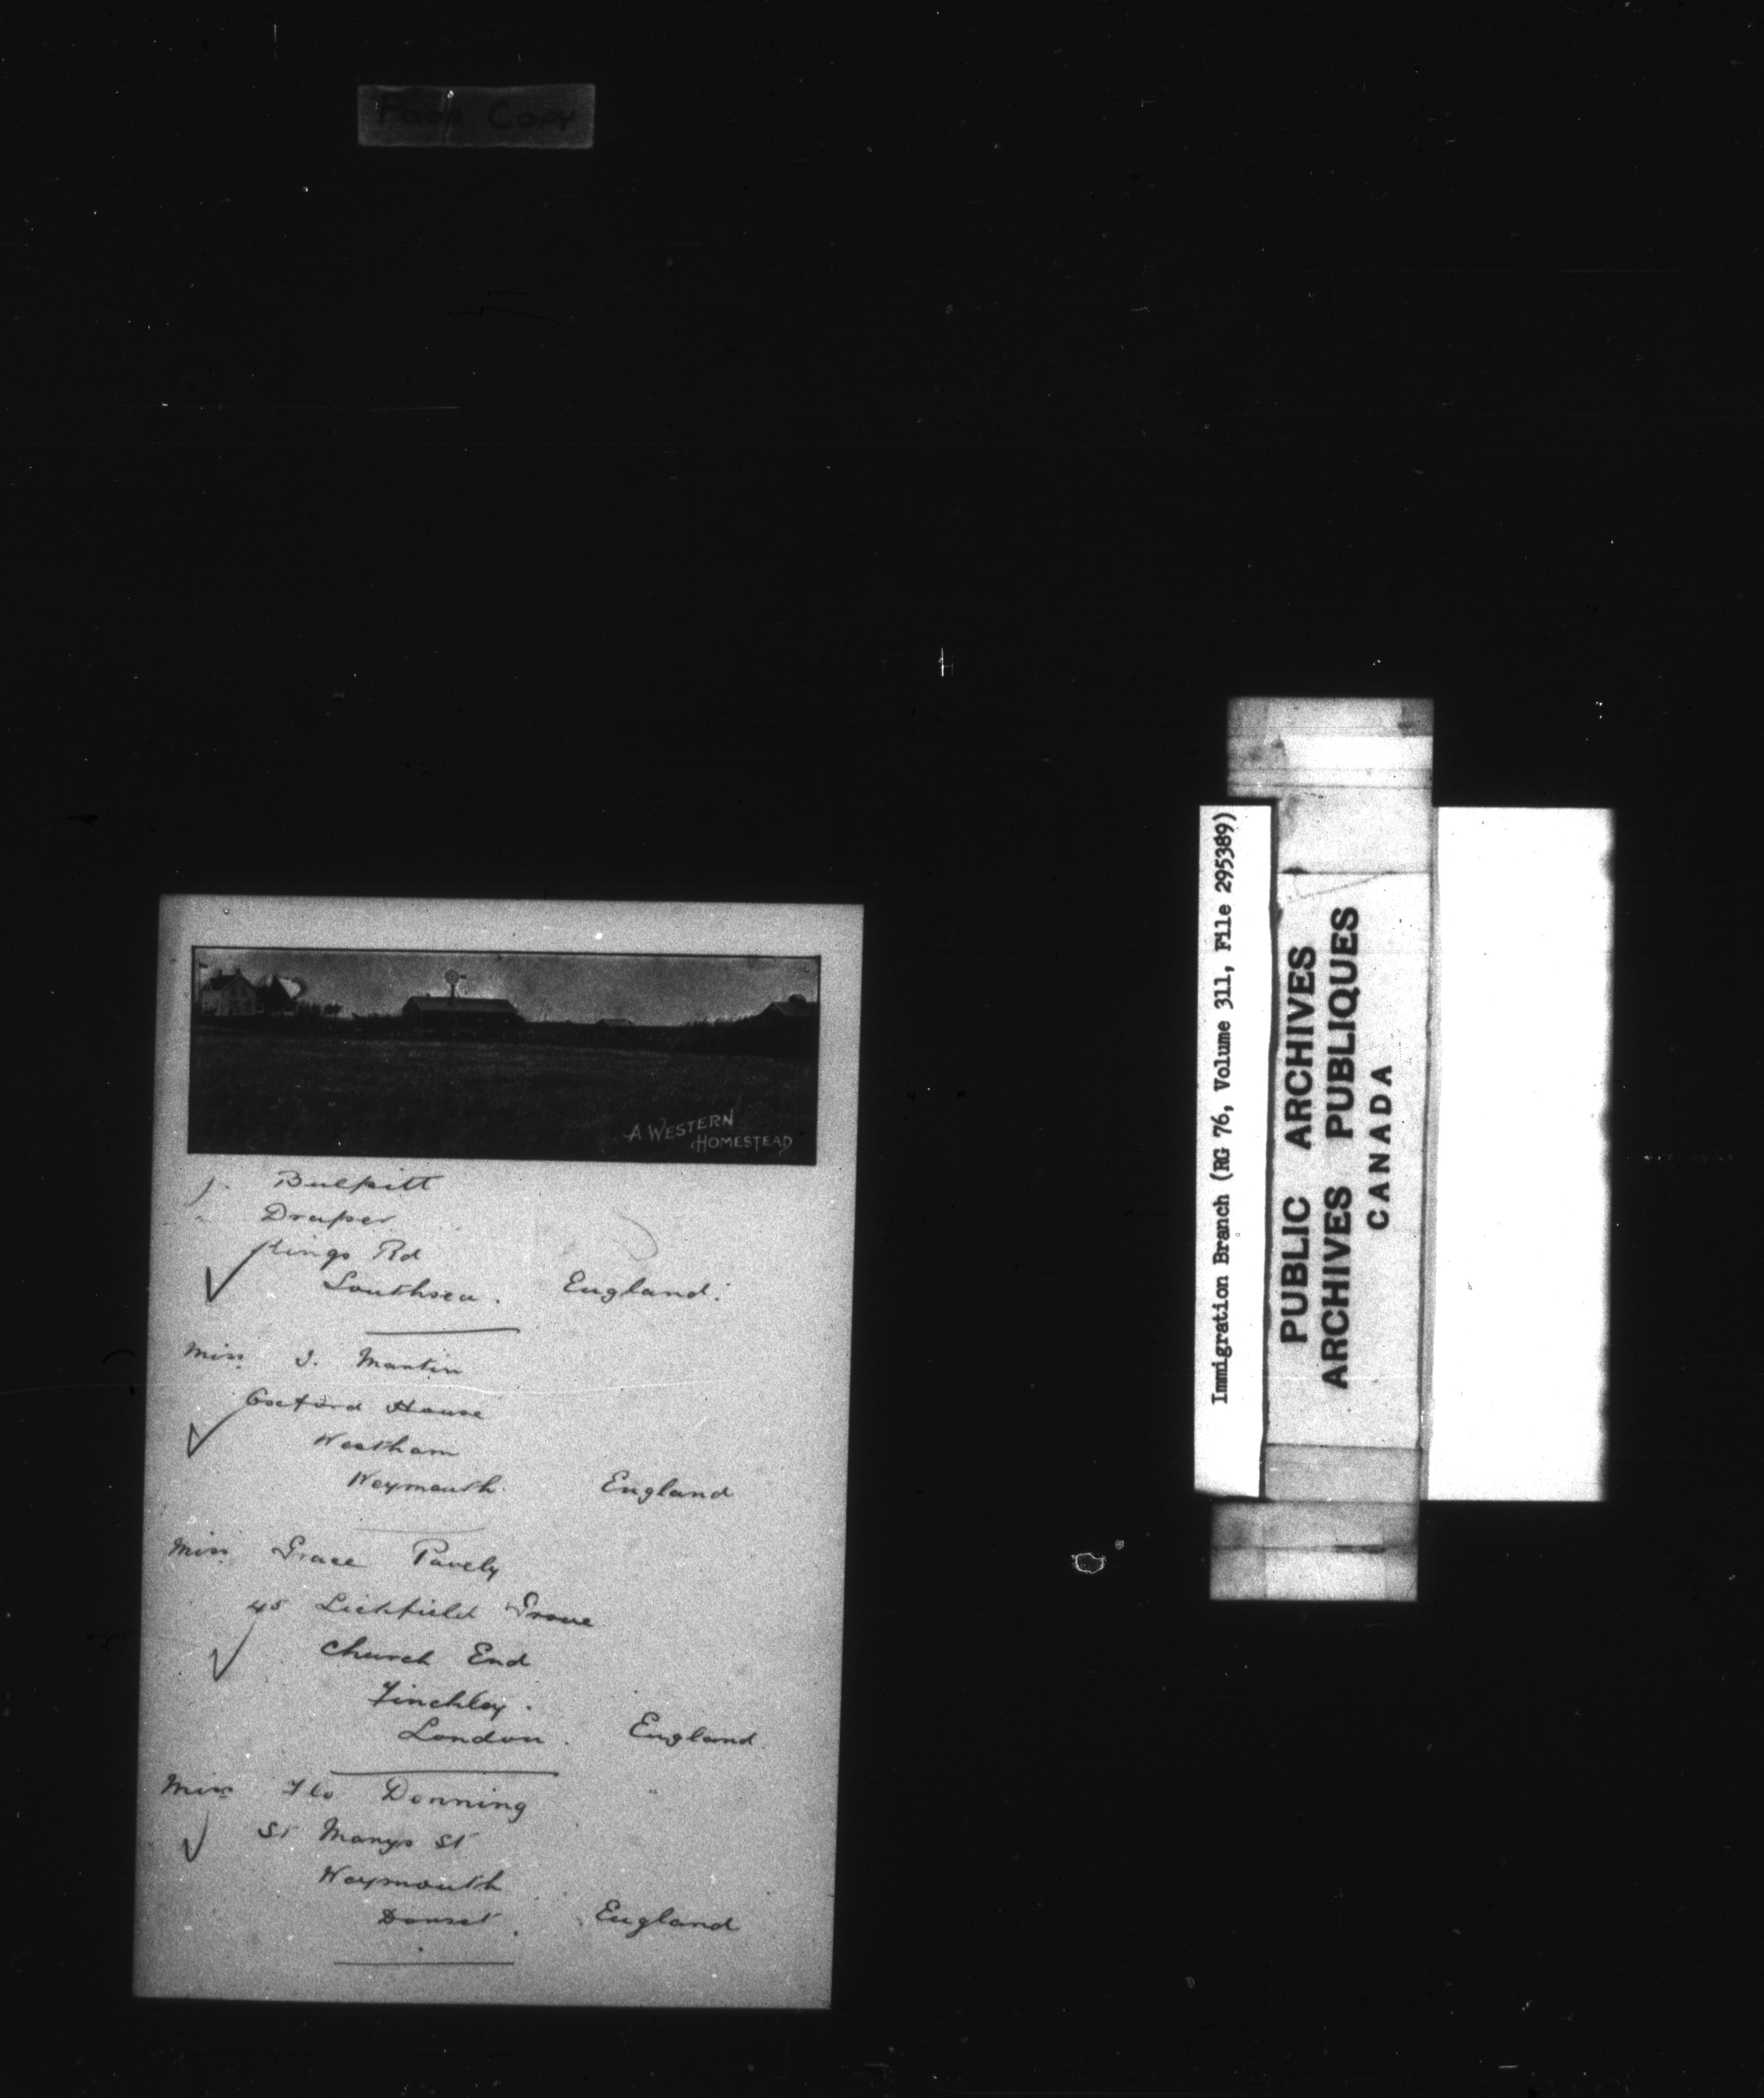 Poor Copy
A WESTERN
HOMESTEAD
J. Bulpitt
Draper
Kings Rd
Southsea. England.
Miss J. Martin
Oxford House
Westham
Weymouth. England
Miss Grace Pavely
45 Lichfield Grove
Church End
Finchley.
London. England.
Miss Flo Donning
St Marys St
Weymouth
Dorset. England
Immigration Branch (RG 76, Volume 311, File 295389)
PUBLIC ARCHIVES
ARCHIVES PUBLIQUES
CANADA